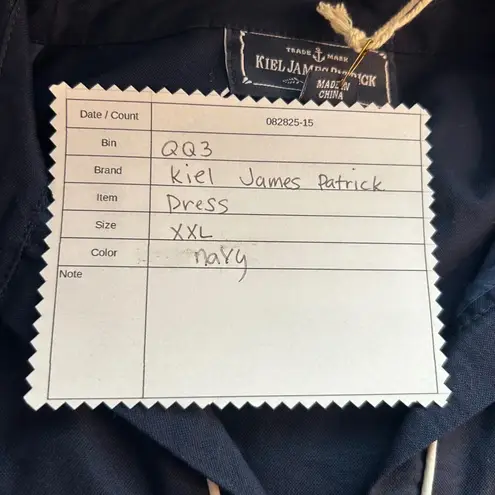 TRADE MARK
KIEL JAMES PATRICK
MADE IN
CHINA
Date / Count 082825-15
Bin QQ3
Brand Kiel James Patrick
Item Dress
Size XXL
Color navy
Note